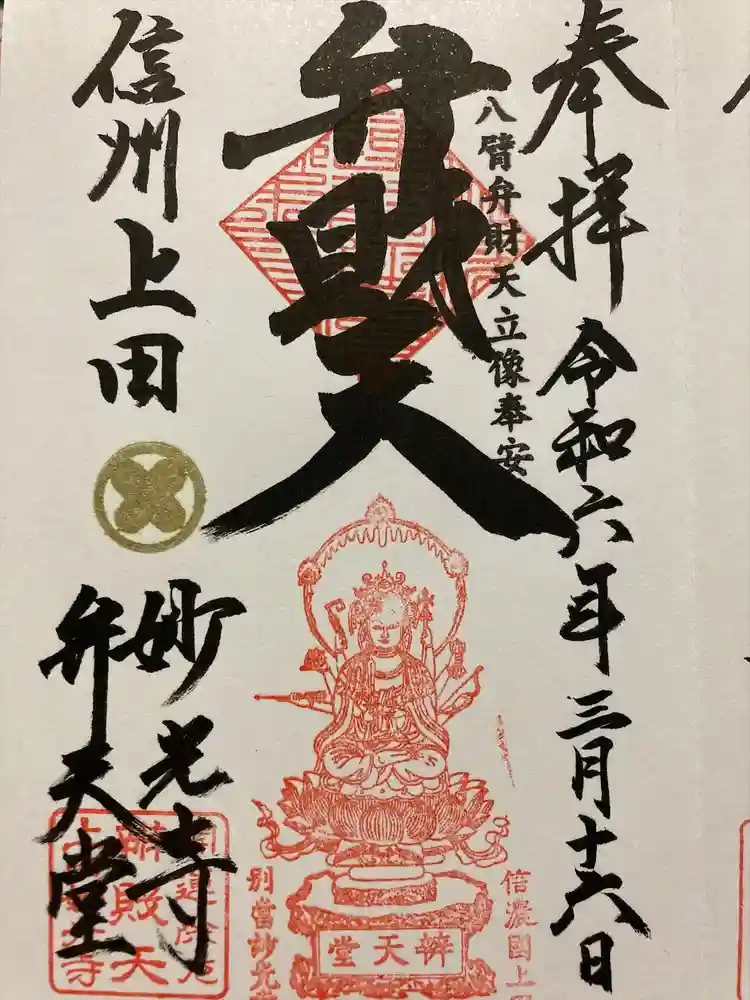 奉拝
令和六年三月十六日
八臂弁財天立像奉安
弁財天
信州上田
妙光寺
弁天堂
信濃国上田
辨天堂
別當妙光寺
辨財天